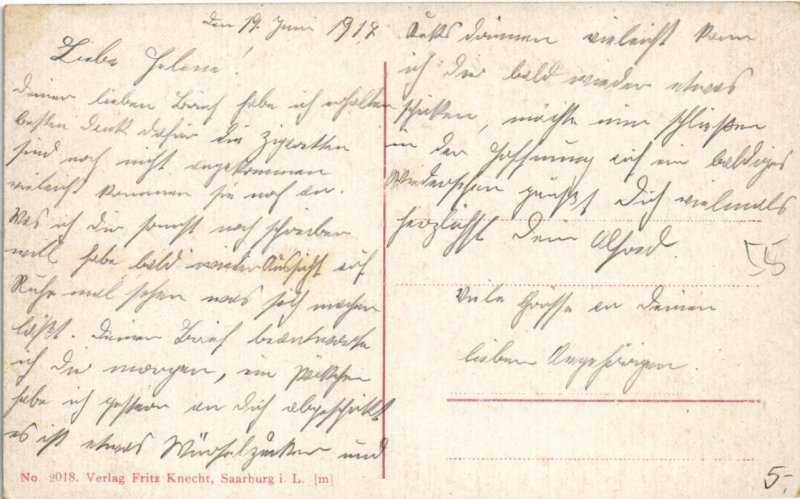 den 19. Juni 1917
Liebe Helene!
Deinen lieben Brief habe ich erhalten
besten Dank dafür die Zigaretten
sind noch nicht angekommen
vieleicht kommen sie noch an.
Was ich Dir sonnst noch schreiben
will habe bald wieder Aussicht auf
Ruhe mal sehen was sich machen
läßt. Deinen Brief beantworte
ich Dir morgen, ein Päckchen
habe ich gestern an Dich abgeschickt
es ist etwas Würfelzucker und
Keks drinnen vieleicht kann
ich Dir bald wieder etwas
schicken, möchte nun schließen
in der Hoffnung auf ein baldiges
Wiedersehen grüßt Dich vielmals
herzlichst Dein Alfred.
Viele Grüsse an Deinen
lieben Angehörigen.
55
No. 2018. Verlag Fritz Knecht, Saarburg i. L. [m]
5.-